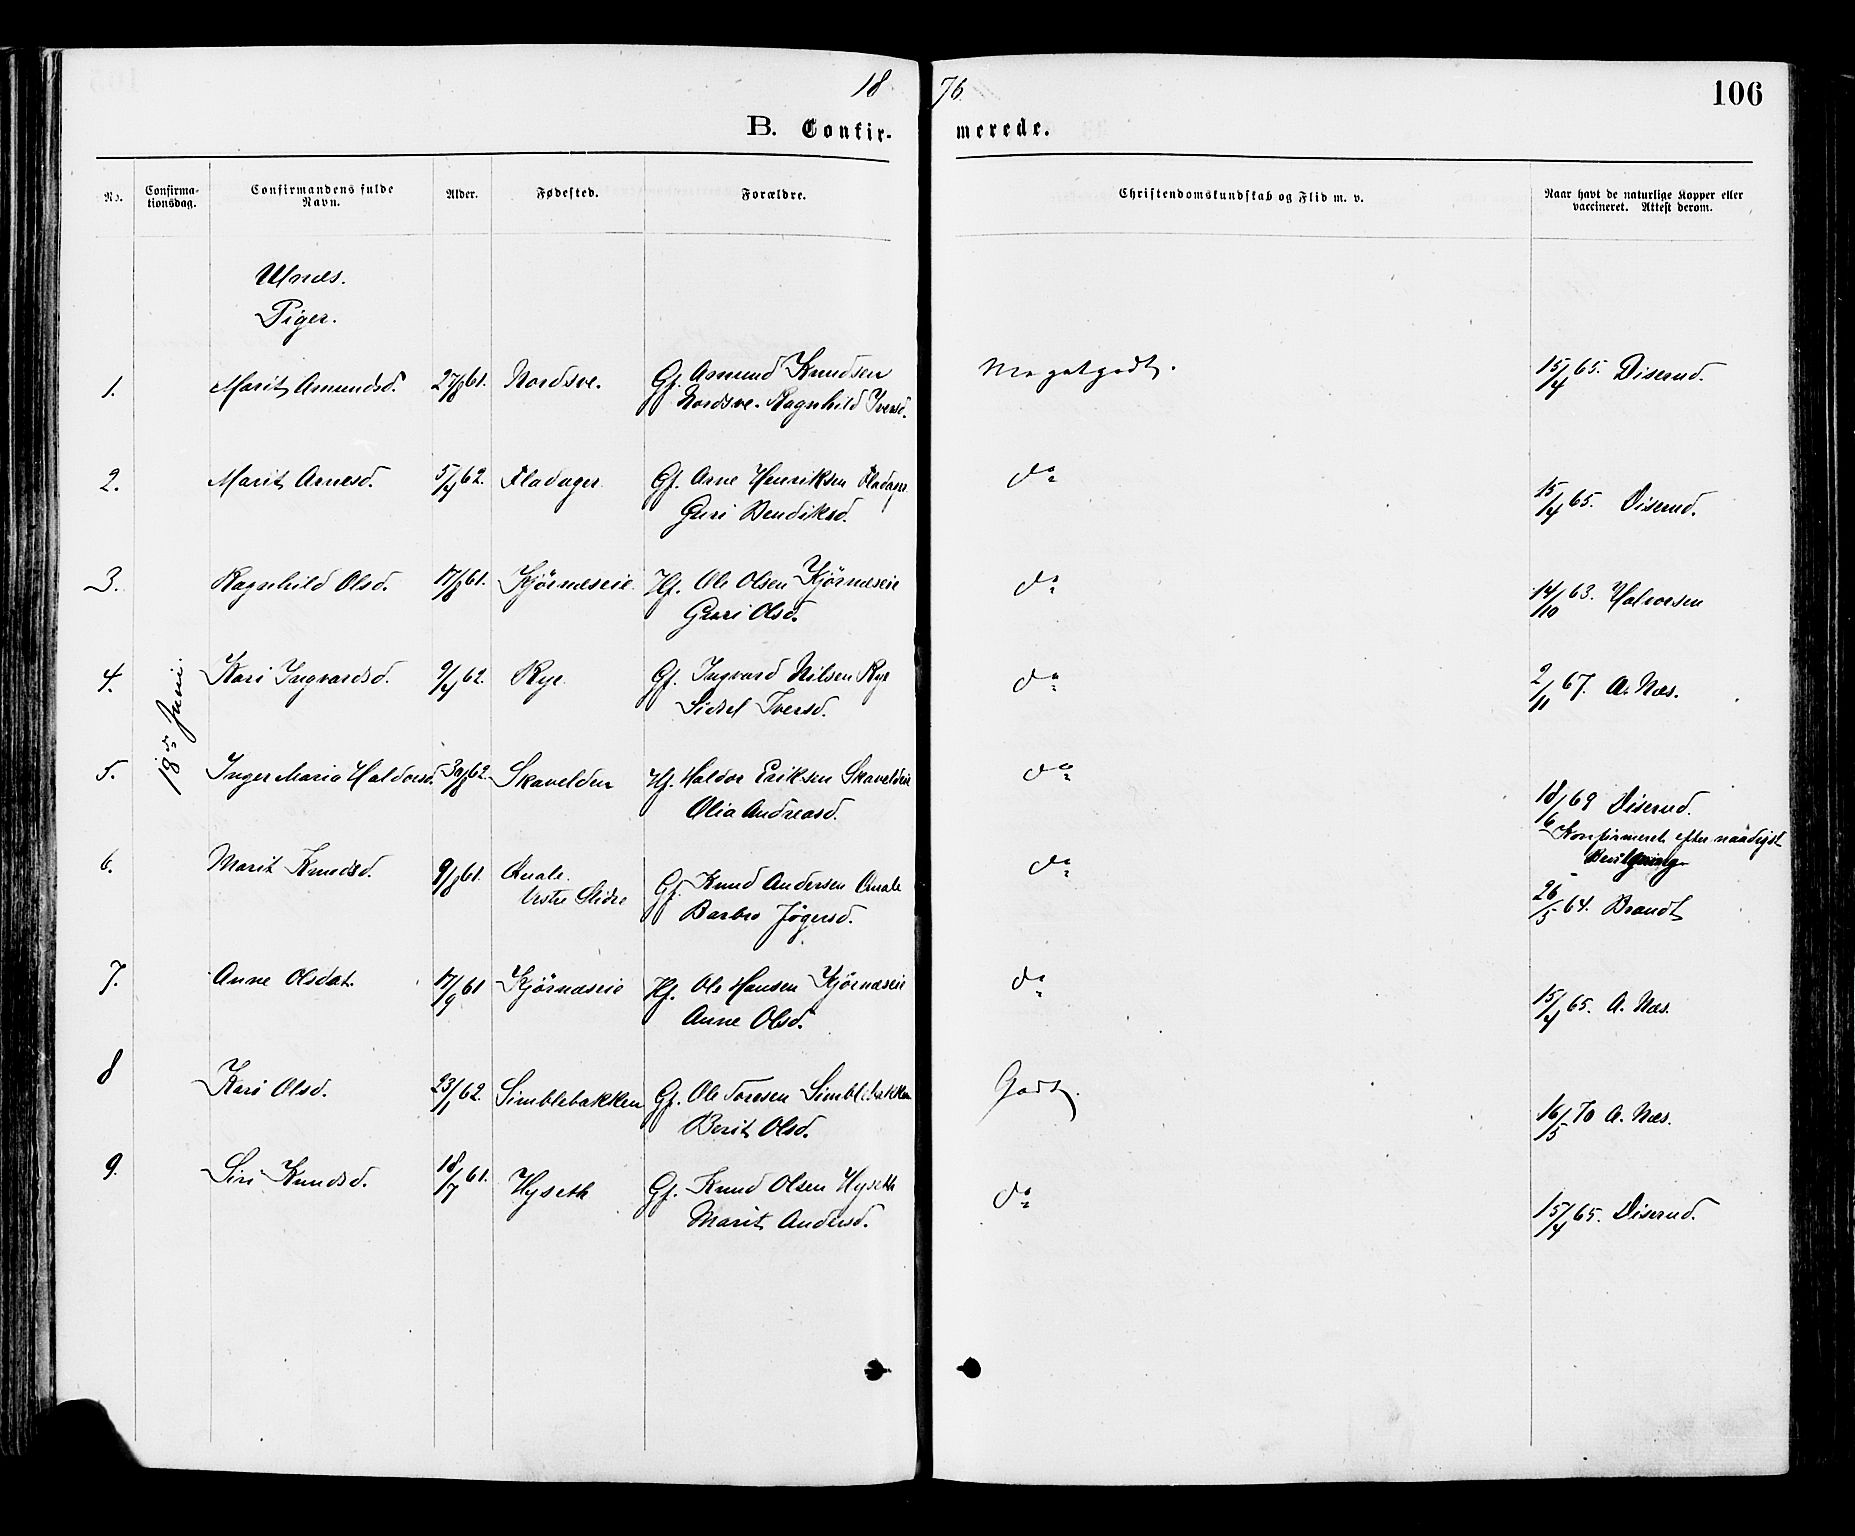 18 76
106
B. Confirmerede.
No.
Confirma-
tionsdag.
Confirmandens fulde
Navn.
Alder.
Fødested.
Forældre.
Christendomskundskab og Flid m. v.
Naar havt de naturlige Kopper eller
vaccineret. Attest derom.
Ulnæs.
Piger.
18de Juni.
1. Marit Amundsd. 27/8 61. Nordsve. Gf. Amund Knudsen Megetgodt. 15/4 65. Diserud.
Nordsve. Ragnhild Iversd.
2. Marit Arnesd. 5/4 62. Fladager Gf. Arne Henriksen Fladager do 15/4 65. Diserud.
Guri Bendiksd.
3. Ragnhild Olsd. 17/8 61. Kjörnæseie Hf. Ole Olsen Kjörnæseie do 14/10 63. Halvorsen
Guri Olsd.
4. Kari Ingvardsd. 9/4 62. Rye Gf. Ingvard Nilsen Rye do 2/11 67. A. Næs.
Sidsel Iversd.
5. Inger Maria Haldorsd. 30/8 62. Skavelden Hf. Haldor Eriksen Skaveldeie do 18/6 69 Diserud.
Olia Andreasd.
Konfirmeret efter naadigst
Bevilgning
6. Marit Knudsd. 9/8 61. Quale. do
Vestre Slidre Gf. Knud Andersen Quale 26/5 64. Brandt
Barbro Jøgersd.
7. Anne Olsdat. 17/9 61 Kjörnæseie Hf. Ole Hansen Kjörnæseie do 15/4 65. A. Næs.
Anne Olsd.
8 Kari Olsd. 23/1 62. Simblebakken Gf. Ole Toresen Simblebakken Godt. 16/5 70 A. Næs.
Berit Olsd.
9. Siri Knudsd. 18/7 61. Hyseth Gf. Knud Olsen Hyseth do 15/4 65. Diserud.
Marit Andersd.